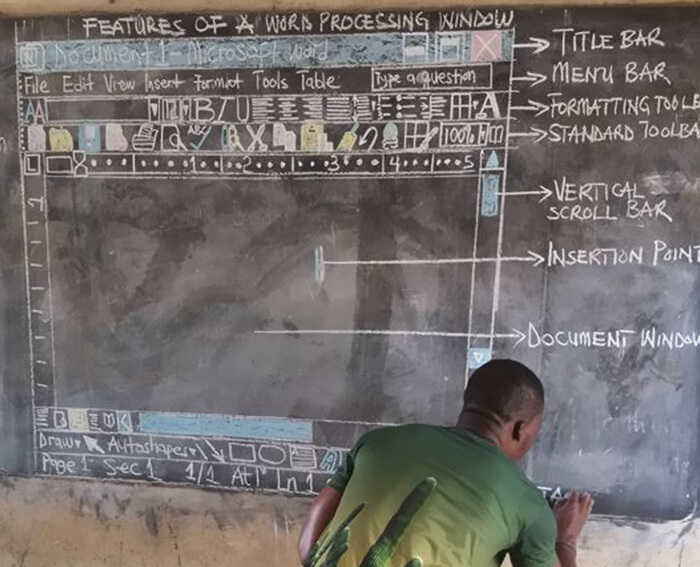 FEATURES OF A WORD PROCESSING WINDOW
Document 1 - Microsoft word
TITLE BAR
File Edit View Insert Format Tools Table
Type a question
MENU BAR
AA
B I U
A
FORMATTING TOOLB
ABC
100%
STANDARD TOOLBA
L
1 2 3 4 5
VERTICAL
SCROLL BAR
INSERTION POINT
DOCUMENT WINDOW
Draw Autoshapes
A
Page 1 Sec 1 1/1 At 1" In 1
STA